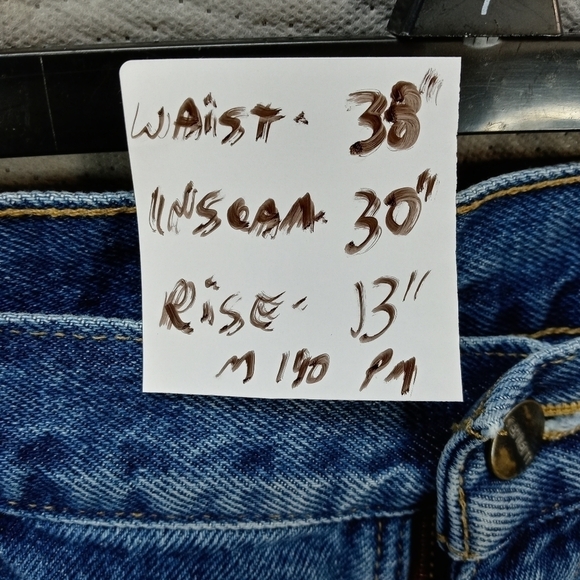 WAiST. 38"
INSEAM. 30"
RiSE- 13"
M 190 PM